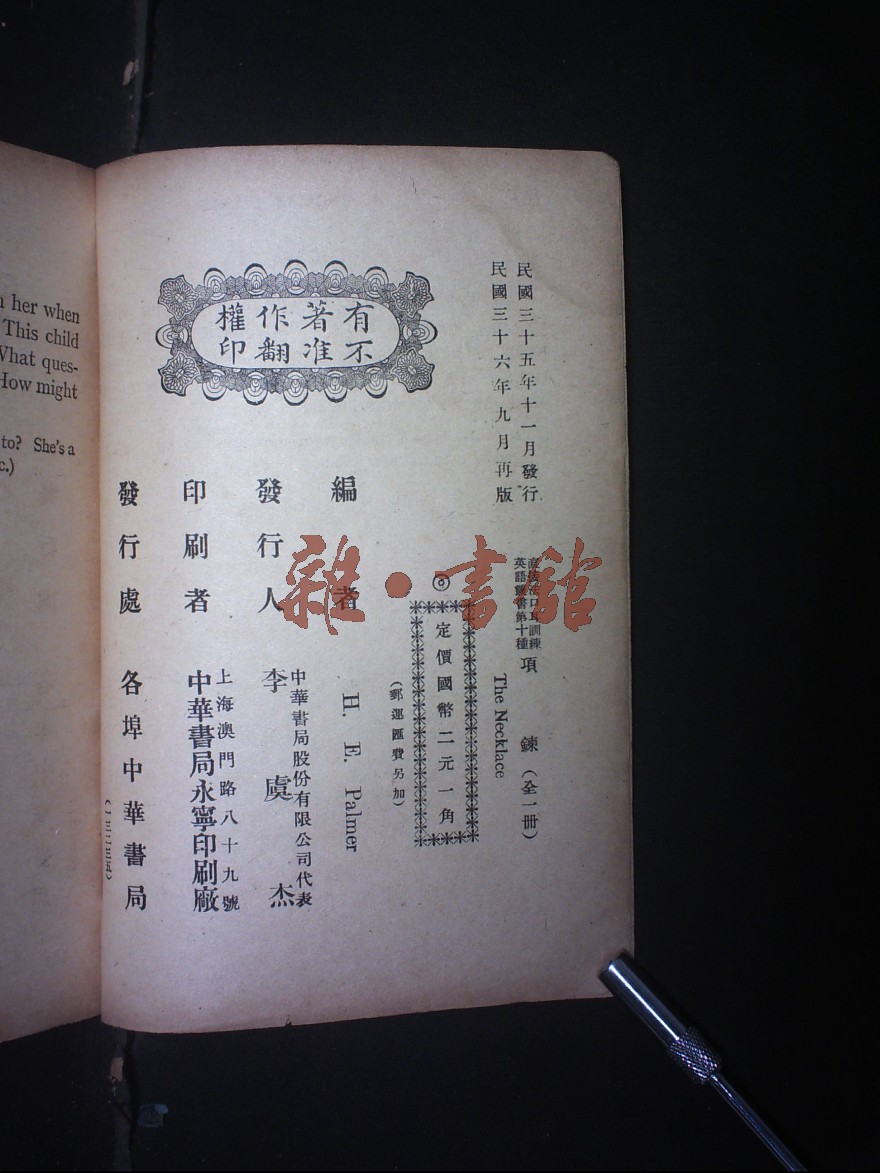 h her when
This child
What ques-
How might
to? She's a
c.)
民國三十五年十一月發行
民國三十六年九月再版
有著作權
不准翻印
直接法口耳訓練
英語叢書第十種
項鍊(全一冊)
The Necklace
◎定價國幣二元一角
(郵運匯費另加)
編者 H. E. Palmer
發行人 李虞杰
中華書局股份有限公司代表
印刷者 中華書局永寧印刷廠
上海澳門路八十九號
發行處 各埠中華書局
雜·書館